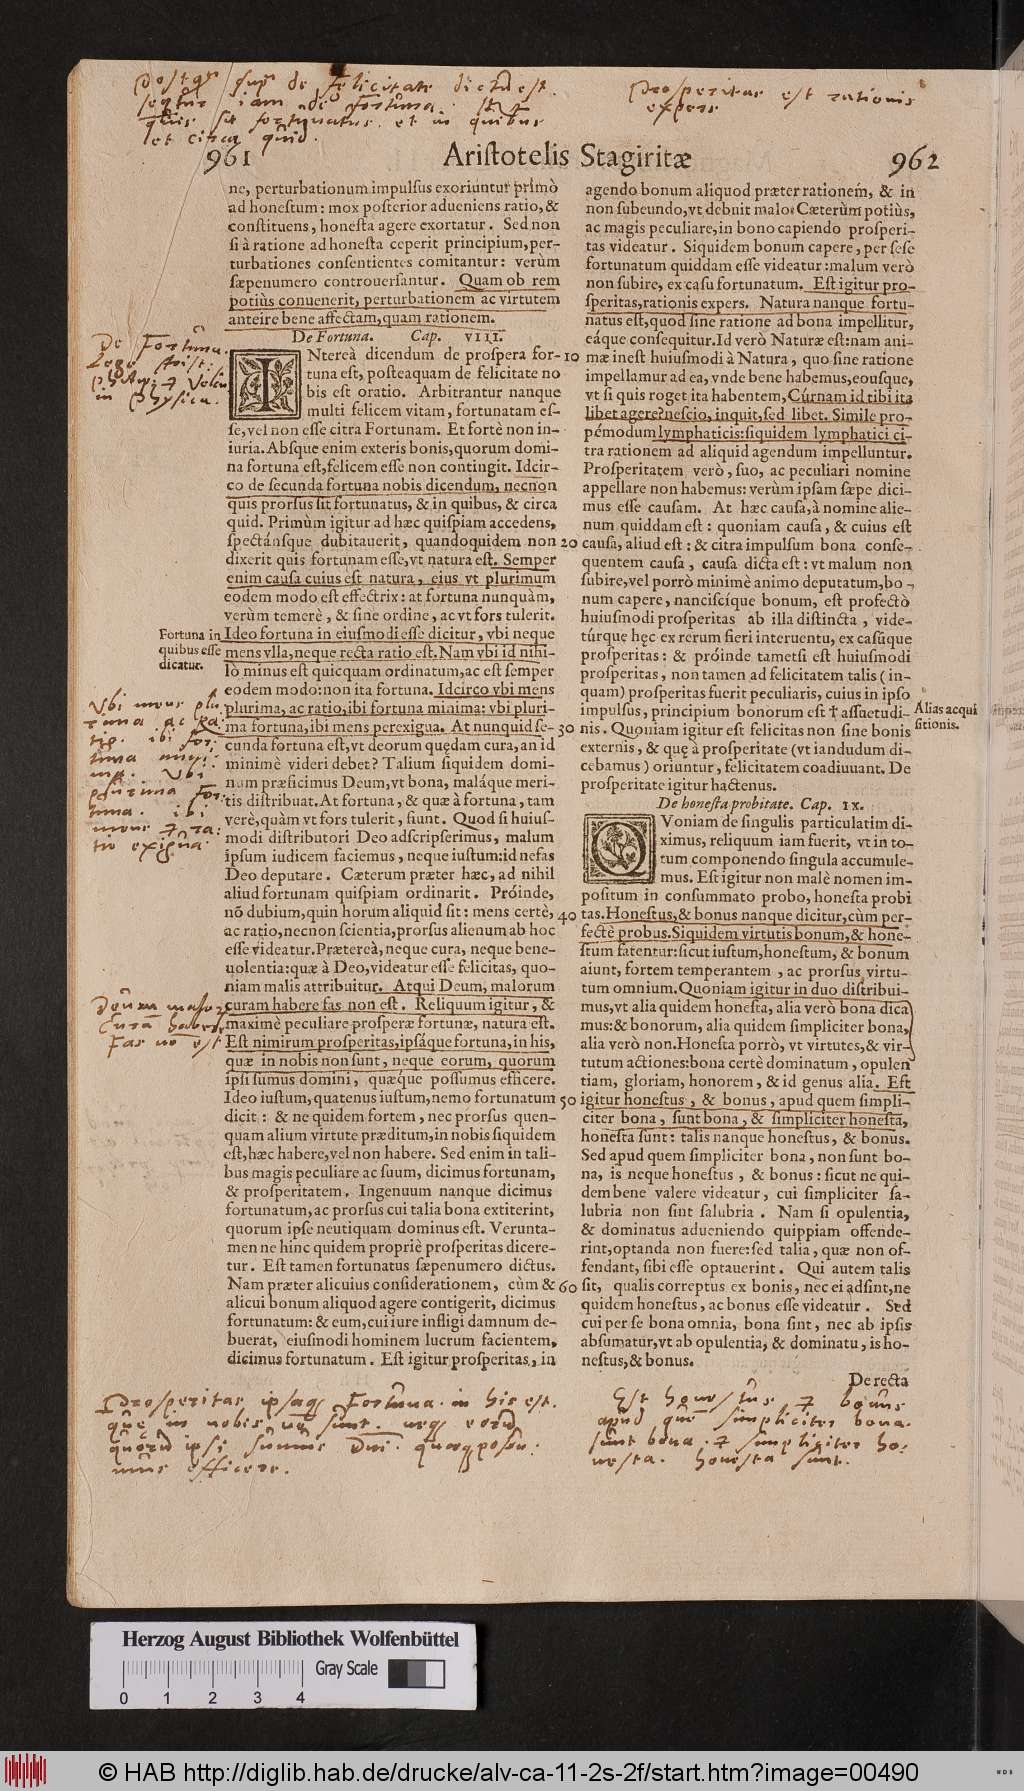 Postq̄ sup̄ de Felicitate dictū est.
seqūtur iam de fortuna.
quis sit fortunatus. et in quibus
et circa quid.
Prosperitas est rationis
expers
961
Aristotelis Stagiritæ
962
ne, perturbationum impulsus exoriuntur primò
ad honestum: mox posterior adueniens ratio, &
constituens, honesta agere exortatur. Sed non
si à ratione ad honesta ceperit principium, per-
turbationes consentientes comitantur: verùm
sæpenumero controuersantur. Quam ob rem
potiùs conuenerit, perturbationem ac virtutem
anteire bene affectam, quam rationem.
De Fortuna. Cap. VIII.
De Fortūna.
Lege Arist:
in Physica.
INtereà dicendum de prospera for-
tuna est, posteaquam de felicitate no
bis est oratio. Arbitrantur nanque
multi felicem vitam, fortunatam es-
se, vel non esse citra Fortunam. Et fortè non in-
iuria. Absque enim exteris bonis, quorum domi-
na fortuna est, felicem esse non contingit. Idcir-
co de secunda fortuna nobis dicendum, necnon
quis prorsus sit fortunatus, & in quibus, & circa
quid. Primùm igitur ad hæc quispiam accedens,
spectánsque dubitauerit, quandoquidem non
dixerit quis fortunam esse, vt natura est. Semper
enim causa cuius est natura, eius vt plurimum
eodem modo est effectrix: at fortuna nunquàm,
verùm temerè, & sine ordine, ac vt fors tulerit.
Fortuna in
quibus esse
dicatur.
Ideo fortuna in eiusmodi esse dicitur, vbi neque
mens vlla, neque recta ratio est. Nam vbi id nihi-
lò minus est quicquam ordinatum, ac est semper
eodem modo: non ita fortuna. Idcirco vbi mens
plurima, ac ratio, ibi fortuna minima: vbi pluri-
ma fortuna, ibi mens perexigua. At nunquid se-
cunda fortuna est, vt deorum quędam cura, an id
minimè videri debet? Talium siquidem domi-
num præficimus Deum, vt bona, maláque meri-
tis distribuat. At fortuna, & quæ à fortuna, tam
verè, quàm vt fors tulerit, fiunt. Quod si huius-
modi distributori Deo adscripserimus, malum
ipsum iudicem faciemus, neque iustum: id nefas
Deo deputare. Cæterum præter hæc, ad nihil
aliud fortunam quispiam ordinarit. Próinde,
nō dubium, quin horum aliquid sit: mens certè,
ac ratio, necnon scientia, prorsus alienum ab hoc
esse videatur. Prætereà, neque cura, neque bene-
uolentia: quæ à Deo, videatur esse felicitas, quo-
niam malis attribuitur. Atqui Deum, malorum
curam habere fas non est. Reliquum igitur, &
maximè peculiare prosperæ fortunæ, natura est.
Est nimirum prosperitas, ipsáque fortuna, in his,
quæ in nobis non sunt, neque eorum, quorum
ipsi sumus domini, quæque possumus efficere.
Ideo iustum, quatenus iustum, nemo fortunatum
dicit: & ne quidem fortem, nec prorsus quen-
quam alium virtute præditum, in nobis siquidem
est, hæc habere, vel non habere. Sed enim in tali-
bus magis peculiare ac suum, dicimus fortunam,
& prosperitatem. Ingenuum nanque dicimus
fortunatum, ac prorsus cui talia bona extiterint,
quorum ipse neutiquam dominus est. Verunta-
men ne hinc quidem propriè prosperitas dicere-
tur. Est tamen fortunatus sæpenumero dictus.
Nam præter alicuius considerationem, cùm &
alicui bonum aliquod agere contigerit, dicimus
fortunatum: & eum, cui iure infligi damnum de-
buerat, eiusmodi hominem lucrum facientem,
dicimus fortunatum. Est igitur prosperitas, in
Vbi mens plu
rima ac ra
tio. ibi for:
tuna mini:
ma. Vbi
plurima For:
tuna. ibi
mens & ra:
tio exigua.
Deum malor.
curā habere
Fas nō est
10
20
30
40
50
60
agendo bonum aliquod præter rationem, & in
non subeundo, vt debuit malo. Cæterùm potiùs,
ac magis peculiare, in bono capiendo prosperi-
tas videatur. Siquidem bonum capere, per sese
fortunatum quiddam esse videatur: malum verò
non subire, ex casu fortunatum. Est igitur pro-
speritas, rationis expers. Natura nanque fortu-
natus est, quod sine ratione ad bona impellitur,
eáque consequitur. Id verò Naturæ est: nam ani-
mæ inest huiusmodi à Natura, quo sine ratione
impellamur ad ea, vnde bene habemus, eousque,
vt si quis roget ita habentem, Cúrnam id tibi ita
libet agere? nescio, inquit, sed libet. Simile pro-
pémodum lymphaticis: siquidem lymphatici ci-
tra rationem ad aliquid agendum impelluntur.
Prosperitatem verò, suo, ac peculiari nomine
appellare non habemus: verùm ipsam sæpe dici-
mus esse causam. At hæc causa, à nomine alie-
num quiddam est: quoniam causa, & cuius est
causa, aliud est: & citra impulsum bona conse-
quentem causa, causa dicta est: vt malum non
subire, vel porrò minimè animo deputatum, bo-
num capere, nanciscíque bonum, est profectò
huiusmodi prosperitas ab illa distincta, vide-
túrque hęc ex rerum fieri interuentu, ex casúque
prosperitas: & próinde tametsi est huiusmodi
prosperitas, non tamen ad felicitatem talis (in-
quam) prosperitas fuerit peculiaris, cuius in ipso
impulsus, principium bonorum est † assuetudi-
nis. Quoniam igitur est felicitas non sine bonis
externis, & quę à prosperitate (vt iandudum di-
cebamus) oriuntur, felicitatem coadiuuant. De
prosperitate igitur hactenus.
Alias acqui
sitionis.
De honesta probitate. Cap. IX.
QVoniam de singulis particulatim di-
ximus, reliquum iam fuerit, vt in to-
tum componendo singula accumule-
mus. Est igitur non malè nomen im-
positum in consummato probo, honesta probi
tas. Honestus, & bonus nanque dicitur, cùm per-
fectè probus. Siquidem virtutis bonum, & hone-
stum fatentur: sicut iustum, honestum, & bonum
aiunt, fortem temperantem, ac prorsus virtu-
tum omnium. Quoniam igitur in duo distribui-
mus, vt alia quidem honesta, alia verò bona dica
mus: & bonorum, alia quidem simpliciter bona,
alia verò non. Honesta porrò, vt virtutes, & vir-
tutum actiones: bona certè dominatum, opulen
tiam, gloriam, honorem, & id genus alia. Est
igitur honestus, & bonus, apud quem simpli-
citer bona, sunt bona, & simpliciter honesta,
honesta sunt: talis nanque honestus, & bonus.
Sed apud quem simpliciter bona, non sunt bo-
na, is neque honestus, & bonus: sicut ne qui-
dem bene valere videatur, cui simpliciter sa-
lubria non sint salubria. Nam si opulentia,
& dominatus adueniendo quippiam offende-
rint, optanda non fuere: sed talia, quæ non of-
fendant, sibi esse optauerint. Qui autem talis
sit, qualis correptus ex bonis, nec ei adsint, ne
quidem honestus, ac bonus esse videatur. Sed
cui per se bona omnia, bona sint, nec ab ipsis
absumatur, vt ab opulentia, & dominatu, is ho-
nestus, & bonus.
De recta
Prosperitas ipsaq; Fortūna. in his est.
quę in nobis nō sūnt. neq; eorū
quorū ipsi sūmus Dni. quæq; possu:
mus efficere.
Est honestus & bonus
apud quē simpliciter bona.
sunt bona. & simpliciter ho:
nesta. honesta sunt.
Herzog August Bibliothek Wolfenbüttel
Gray Scale
0 1 2 3 4
© HAB http://diglib.hab.de/drucke/alv-ca-11-2s-2f/start.htm?image=00490